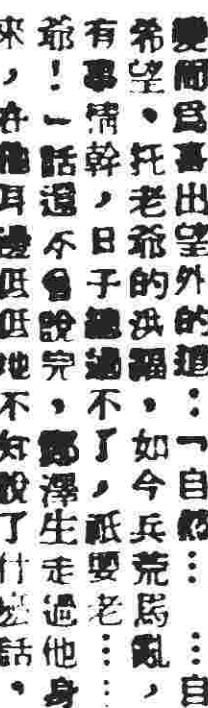 變間爲喜出望外的道：「自然……自
希望，托老爺的洪福，如今兵荒馬亂，
有事情幹，日子總過不了，祇要老……
爺！」話還不會說完，鄭澤生走過他身
來，在他耳邊低低地不知說了什麽話，